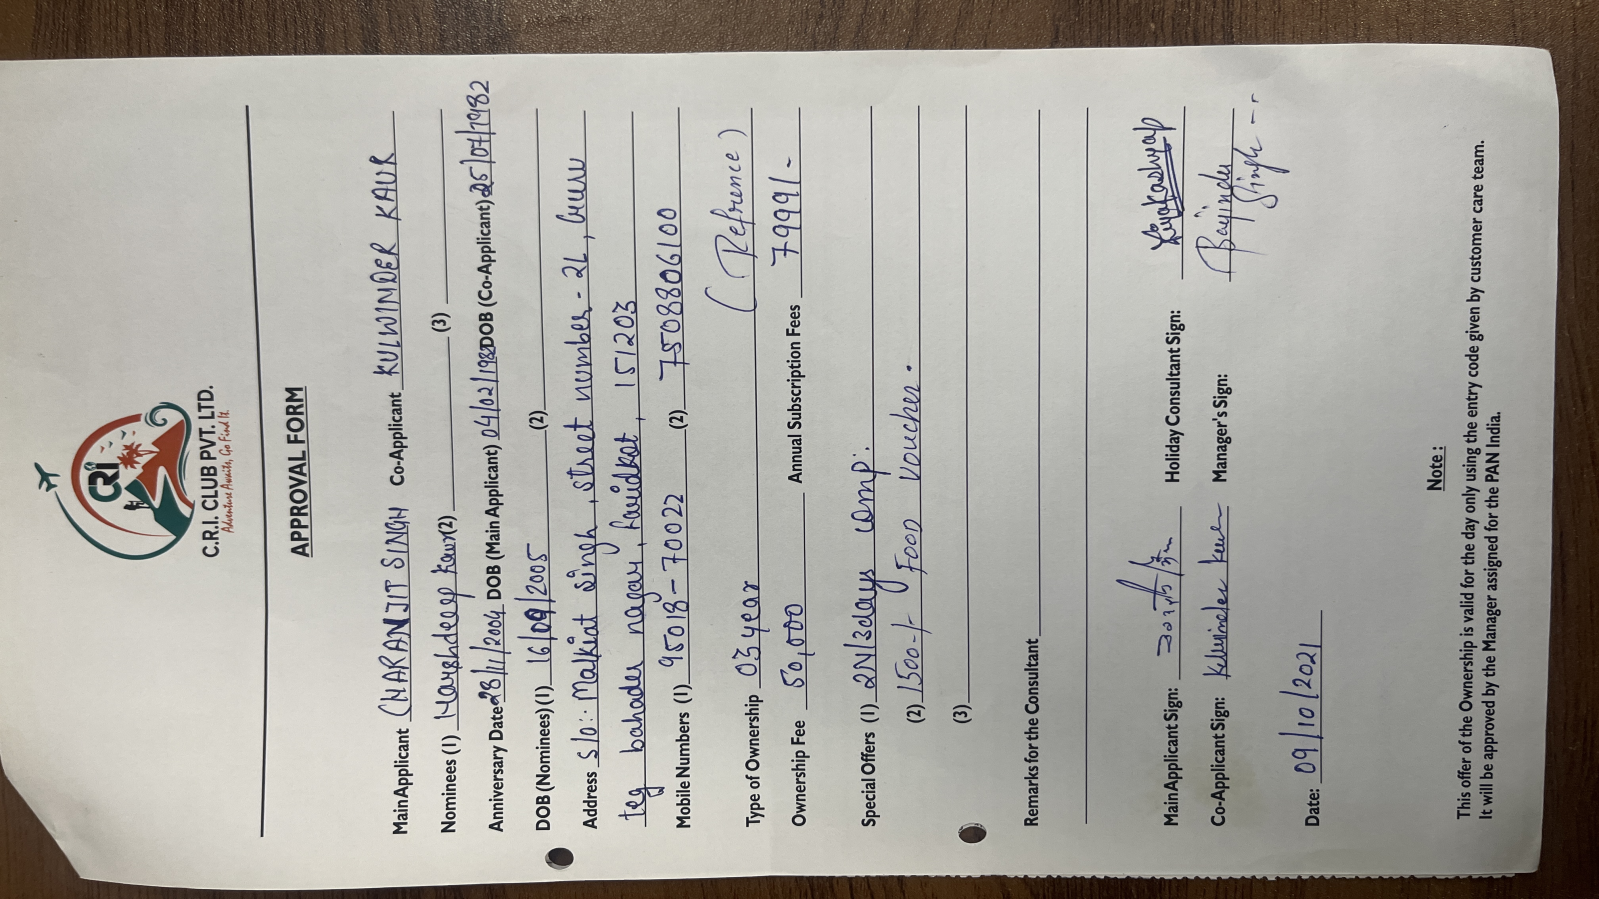 CRI
C.R.I. CLUB PVT. LTD.
Adventure Awaits, Go Find It.
APPROVAL FORM
Main Applicant CHARANJIT SINGH Co-Applicant KULWINDER KAUR
Nominees (1) Harshdeep Kaur (2) (3)
Anniversary Date 28/11/2004 DOB (Main Applicant) 04/02/1982 DOB (Co-Applicant) 25/07/1982
DOB (Nominees) (1) 16/09/2005 (2)
Address S/o:: Malkiat Singh, street number - 2L, Guru
teg bahader nagar, faridkot, 151203
Mobile Numbers (1) 95018-70022 (2) 7508806100
Type of Ownership 03 year (Refrence)
Ownership Fee 50,000 Annual Subscription Fees 7999/-
Special Offers (1) 2N/3days comp.
(2) 1500-/- Food Voucher.
(3)
Remarks for the Consultant
Main Applicant Sign: Holiday Consultant Sign:
Co-Applicant Sign: Kulwinder Kaur Manager's Sign: Rajinder Singh
Date: 09/10/2021
Note :
This offer of the Ownership is valid for the day only using the entry code given by customer care team.
It will be approved by the Manager assigned for the PAN India.